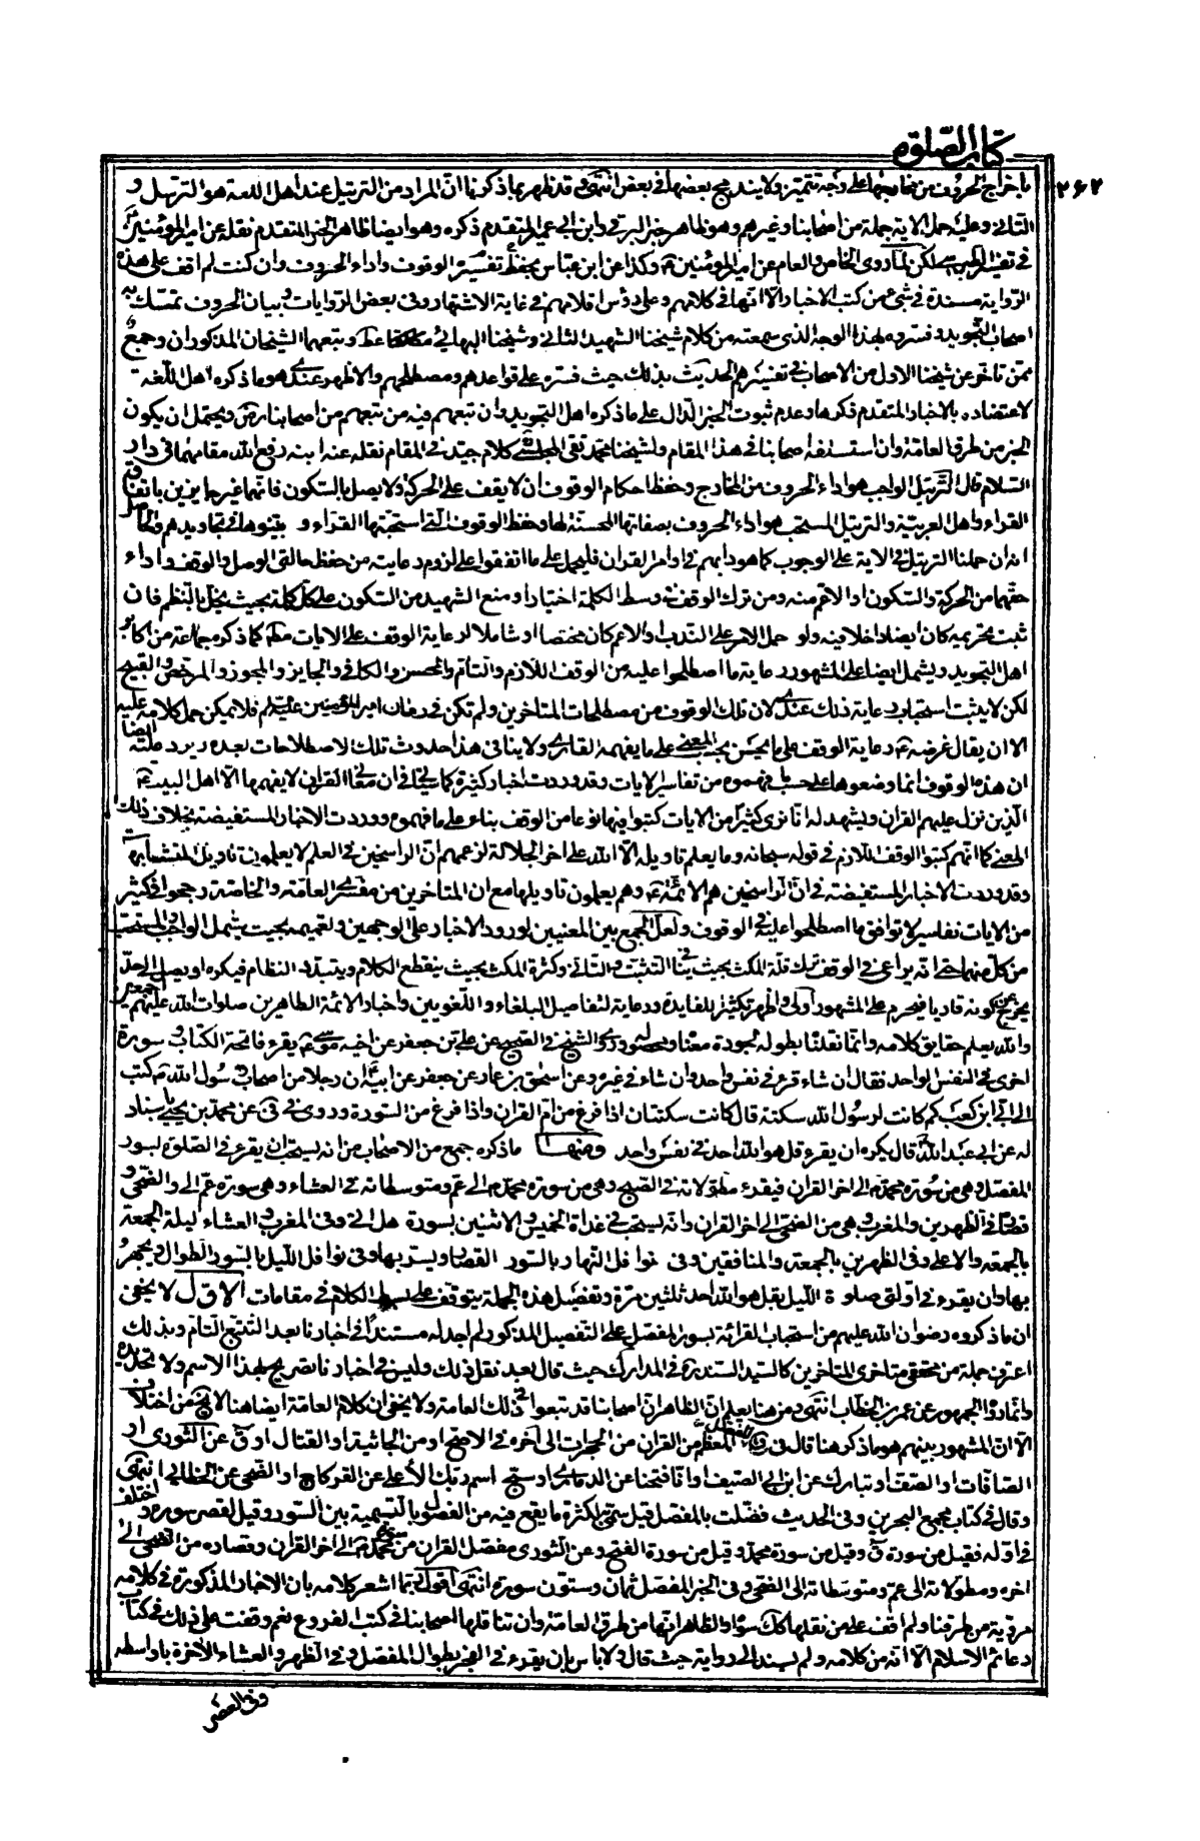 كتاب الصلوة
٢٦٢
باخراج الحروف من مخارجها على وجه تتميز ولا يندمج بعضها في بعض انتهى وقد ظهر بما ذكرنا ان المراد من الترتيل عند اهل اللغة هو الترسل و
التأني وعليه حمل الاية جملة من اصحابنا وغيرهم وهو ظاهر خبر البرقي وابن ابي عمير المتقدم ذكره وهو ايضا ظاهر الخبر المتقدم نقله عن امير المؤمنين
في تفسير الترتيل لكن لما روى الخاص والعام عن امير المؤمنين ع وكذا عن ابن عباس بحفظ تفسيره الوقوف واداء الحروف وان كنت لم اقف على هذه
الرواية مسندة في شئ من كتب الاخبار الا انها في كلامهم وعلى رؤس اقلامهم في غاية الاشتهار وفي بعض الروايات وبيان الحروف تمسك به
اصحاب التجويد وفسروه بهذا الوجه الذي سمعته من كلام شيخنا الشهيد الثاني وشيخنا البهائي وتبعهما الشيخان المذكوران وجمع
ممن تأخر عن شيخنا الاول من الاصحاب في تفسيرهم الحديث بذلك حيث فسره على قواعدهم ومصطلحهم والاظهر عندي هو ما ذكره اهل اللغة
لاعتضاده بالاخبار المتقدم ذكرها وعدم ثبوت الخبر الدال على ما ذكره اهل التجويد وان تبعهم فيه من تبعهم من اصحابنا رض ويحتمل ان يكون
الخبر من طرق العامة وان استسلفه اصحابنا في هذا المقام ولشيخنا محمد تقي المجلسي كلام جيد في المقام نقله عنه ابنه رفع الله مقامهما في دار
السلام قال الترتيل الواجب هو اداء الحروف من المخارج وحفظ احكام الوقوف ان لا يقف على الحركة ولا يصل بالسكون فانهما غير جايزين باتفاق
القراء واهل العربية والترتيل المستحب هو اداء الحروف بصفاتها المحسنة لها وحفظ الوقوف التي استحبتها القراء و بينوها في تجاويدهم والحاصل
انه ان حملنا الترتيل في الاية على الوجوب كما هو دابهم في اوامر القران فليحمل على ما اتفقوا على لزوم رعايته من حفظ حالتي الوصل والوقف واداء
حقهما من الحركة والسكون او الاعم منه ومن ترك الوقف في وسط الكلمة اختيارا ومنع الشهيد من السكون على كل كلمة بحيث يخل بالنظم فان
ثبت تحريمه كان ايضا داخلا فيه ولو حمل الامر على الندب او الاعم كان مختصا او شاملا لرعاية الوقف على الايات مطلقا كما ذكره جماعة من اكابر
اهل التجويد ويشمل ايضا على المشهور رعاية ما اصطلحوا عليه من الوقف اللازم والتام والحسن والكافي والجايز والمجوز والمرخص والقبيح
لكن لا يثبت استحباب رعاية ذلك عندي لان تلك الوقوف من مصطلحات المتاخرين ولم تكن في زمان امير المؤمنين عليه السلم فلا يمكن حمل كلامه عليه
الا ان يقال غرضه ع رعاية الوقف على ما يحسن بحسب المعنى على ما يفهمه القاري ولا ينافي هذا حدوث تلك الاصطلاحات بعده ويرد عليه ايضا
ان هذه الوقوف انما وضعوها على حسب ما فهموه من تفاسير الايات وقد وردت اخبار كثيرة كما سياتي في ان معاني القران لا يفهمها الا اهل البيت ع
الذين نزل عليهم القران ويشهد له انا نرى كثيرا من الايات كتبوا فيها نوعا من الوقف بناء على ما فهموه ووردت الاخبار المستفيضة بخلاف ذلك
المعنى كما انهم كتبوا الوقف اللازم في قوله سبحانه وما يعلم تاويله الا الله على اخر الجلالة لزعمهم ان الراسخين في العلم لا يعلمون تاويل المتشابه
وقد وردت الاخبار المستفيضة في ان الراسخين هم الائمة ع وهم يعلمون تاويلها مع ان المتاخرين من مفسري العامة والخاصة رجحوا في كثير
من الايات تفاسير لا توافق ما اصطلحوا عليه في الوقوف ولعل الجمع بين المعنيين لورود الاخبار على الوجهين وتعميمه بحيث يشمل الواجب والمستحب
من كل منهما حتى انه يراعى في الوقف ترك قلة المكث بحيث ينافي التثبت والتأني وكثرة المكث بحيث ينقطع الكلام ويتبدد النظام فيكره او يصل الى حد
يخرج عن كونه قاريا فيحرم على المشهور اولى واظهر تكثيرا للفايدة ورعاية لتفاصيل البلغاء واللغويين واخبار الائمة الطاهرين صلوات الله عليهم اجمعين
والله يعلم حقايق كلامه وانما نقلناه بطوله لجودة معناه ومحصوله وروى الشيخ في الصحيح عن علي بن جعفر عن اخيه موسى ع يقرء فاتحة الكتاب وسورة
اخرى في النفس الواحد فقال ان شاء قرء في نفس واحد وان شاء في غيره وعن اسحق بن عمار عن جعفر عن ابيه ع ان رجلا من اصحاب رسول الله ص كتب
الى ابي ابن كعب كم كانت لرسول الله سكتة قال كانت سكتتان اذا فرغ من ام القران واذا فرغ من السورة وروى في في عن محمد بن يحيى باسناد
له عن ابي عبد الله ع قال يكره ان يقرء قل هو الله احد في نفس واحد ومنها ما ذكره جمع من الاصحاب من انه يستحب ان يقرء في الصلوة بسور
المفصل وهي من سورة محمد ص الى اخر القران فيقرء مطولاته في الصبح وهي من سورة محمد ص الى عم ومتوسطاته في العشاء وهي سورة عم الى والضحى و
قصاره في الظهرين والمغرب وهي من الضحى الى اخر القران وانه يستحب في غداة الخميس والاثنين بسورة هل اتى وفي المغرب والعشاء ليلة الجمعة
بالجمعة والاعلى وفي الظهرين بالجمعة والمنافقين وفي نوافل النهار بالسور القصار ويسر بها وفي نوافل الليل بالسور الطوال ويجهر
بها وان يقرء في اولتي صلوة الليل بقل هو الله احد ثلثين مرة وتفصيل هذه الجملة يتوقف على بسط الكلام في مقامات الاول لا يخفى
ان ما ذكروه رضوان الله عليهم من استحباب القرائة بسور المفصل على التفصيل المذكور لم اجد له مستندا في اخبارنا بعد التتبع التام وبذلك
اعترف جملة من محققي متاخري المتاخرين كالسيد السند ره في المدارك حيث قال بعد نقل ذلك وليس في اخبارنا تصريح بهذا الاسم ولا تحديده
وانما رواه الجمهور عن عمر بن الخطاب انتهى ومن هنا يعلم ان الظاهر ان اصحابنا قد تبعوا في ذلك العامة ولا يخفى ان كلام العامة ايضا هنا لا يخ من اختلاف
الا ان المشهور بينهم هو ما ذكر هنا قال في من القران من الحجرات الى آخره في الاصح او من الجاثية او القتال او ق عن النووي او
الصافات او الصف او تبارك عن ابن ابي الصيف او انا فتحنا عن الدزماري او سبح اسم ربك الأعلى عن الفركاح او الضحى عن الخطابي انتهى
وقال في كتاب مجمع البحرين وفي الحديث فضلت بالمفصل قيل سمي به لكثرة ما يقع فيه من الفصول بالتسمية بين السور وقيل لقصر سوره واختلف
في اوله فقيل من سورة ق وقيل من سورة محمد وقيل من سورة الفتح وعن النووي مفصل القران من محمد ص الى آخر القران وقصاره من الضحى الى
اخره ومطولاته الى عم ومتوسطاته الى الضحى وفي الخبر المفصل ثمان وستون سورة انتهى اقول ربما اشعر كلامه بان الاخبار المذكورة في كلامه
مروية من طرقنا ولم اقف على من نقلها كك سواه والظاهر انها من طرق العامة وان تناقلها اصحابنا في كتب الفروع نعم وقفت على ذلك في كتاب
دعائم الاسلام الا انه من كلامه ولم يسنده الى رواية حيث قال ولا باس بان يقرء في الفجر بطوال المفصل وفي الظهر والعشاء الآخرة باواسطه
وفي العصر